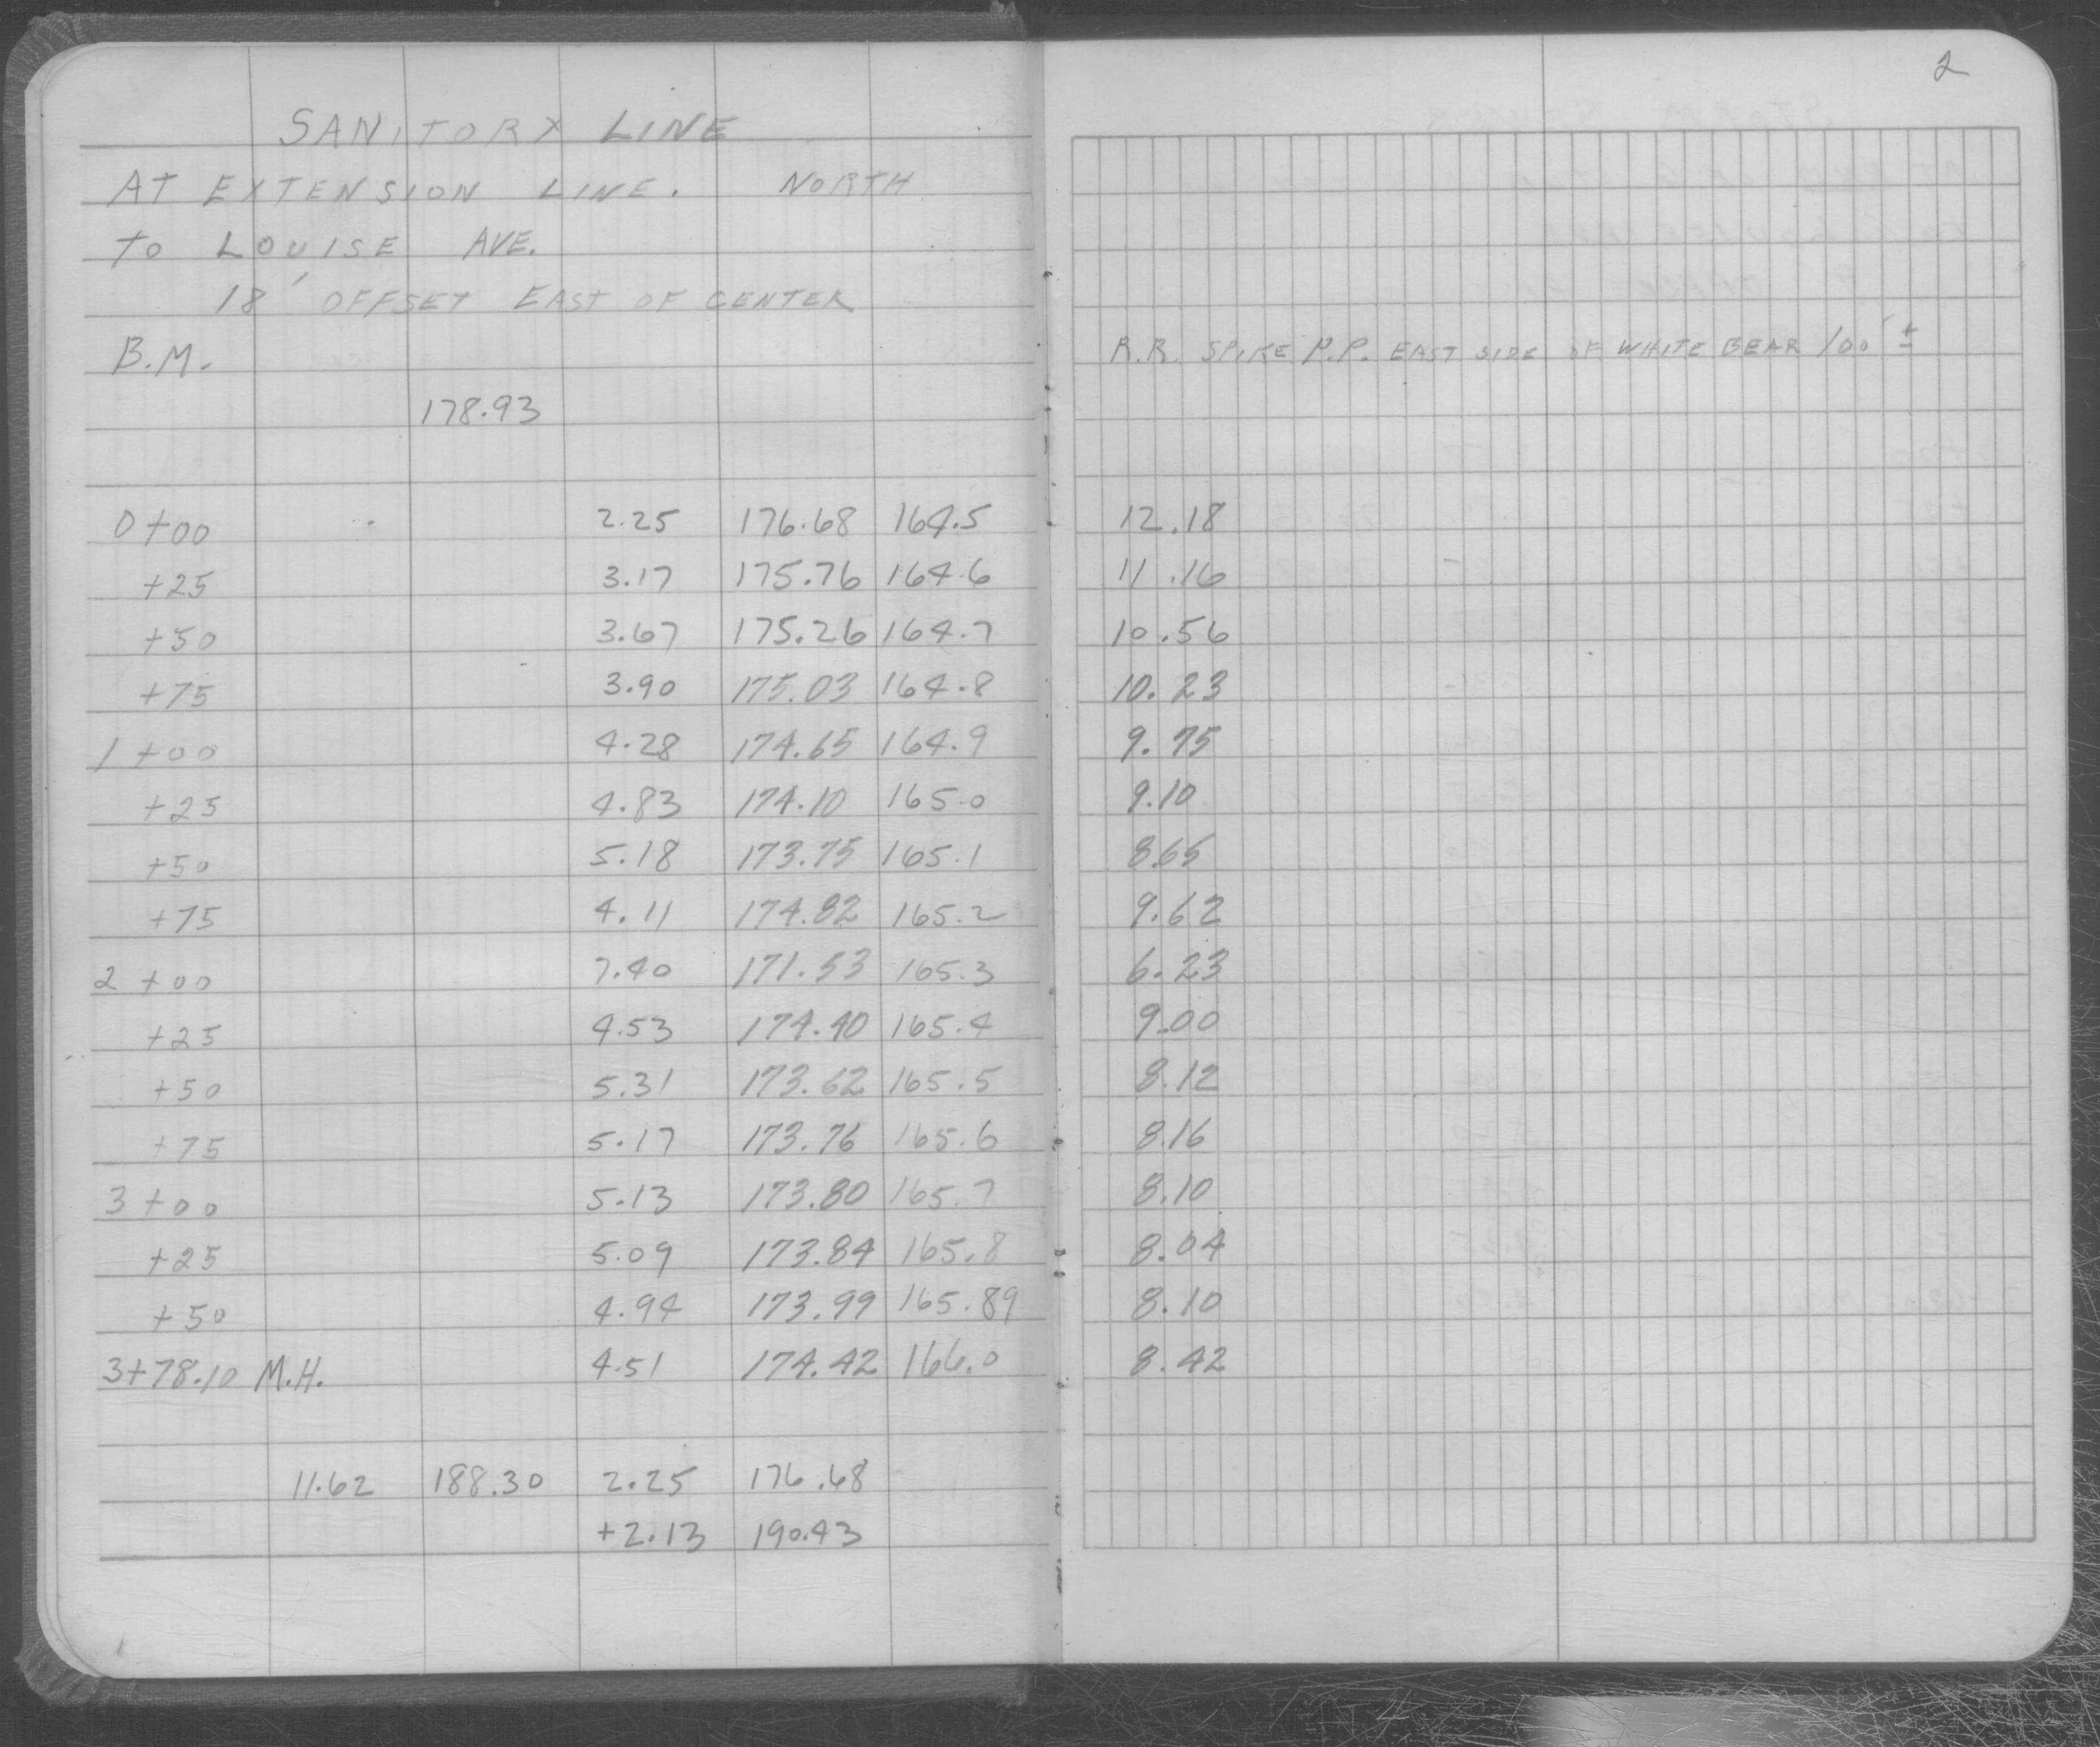 2
SANITORY LINE
AT EXTENSION LINE. NORTH
TO LOUISE AVE.
18' OFFSET EAST OF CENTER
B.M. R.R. SPIKE P.P. EAST SIDE OF WHITE BEAR 100' ±
178.93
0+00 2.25 176.68 164.5 12.18
+25 3.17 175.76 164.6 11.16
+50 3.67 175.26 164.7 10.56
+75 3.90 175.03 164.8 10.23
1+00 4.28 174.65 164.9 9.75
+25 4.83 174.10 165.0 9.10
+50 5.18 173.75 165.1 8.65
+75 4.11 174.82 165.2 9.62
2+00 7.40 171.53 165.3 6.23
+25 4.53 174.40 165.4 9.00
+50 5.31 173.62 165.5 8.12
+75 5.17 173.76 165.6 8.16
3+00 5.13 173.80 165.7 8.10
+25 5.09 173.84 165.8 8.04
+50 4.94 173.99 165.89 8.10
3+78.10 M.H. 4.51 174.42 166.0 8.42
11.62 188.30 2.25 176.68
+2.13 190.43